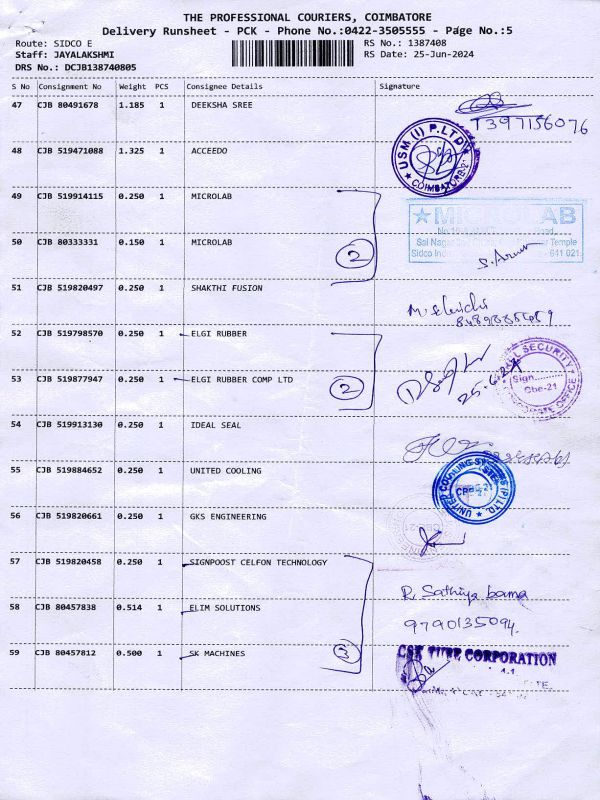 THE PROFESSIONAL COURIERS, COIMBATORE
Delivery Runsheet - PCK - Phone No.:0422-3505555 - Page No.:5
Route: SIDCO E RS No.: 1387408
Staff: JAYALAKSHMI RS Date: 25-Jun-2024
DRS No.: DCJB138740805
S No Consignment No Weight PCS Consignee Details Signature
47 CJB 80491678 1.185 1 DEEKSHA SREE
48 CJB 519471088 1.325 1 ACCEEDO
USM (I) P.LTD
COIMBATORE-21
49 CJB 519914115 0.250 1 MICROLAB
MICROLAB
2
50 CJB 80333331 0.150 1 MICROLAB
Sai Nagar Temple
Sidco - 641 021
51 CJB 519820497 0.250 1 SHAKTHI FUSION
52 CJB 519798570 0.250 1 ELGI RUBBER
SECURITY
Sign
Cbe-21
OFFICE
25-6-24
2
53 CJB 519877947 0.250 1 ELGI RUBBER COMP LTD
54 CJB 519913130 0.250 1 IDEAL SEAL
55 CJB 519884652 0.250 1 UNITED COOLING
UNITED COOLING SYSTEMS (P) LTD.
56 CJB 519820661 0.250 1 GKS ENGINEERING
57 CJB 519820458 0.250 1 SIGNPOOST CELFON TECHNOLOGY
R. Sathiya bama
58 CJB 80457838 0.514 1 ELIM SOLUTIONS
9790135094
3
59 CJB 80457812 0.500 1 SK MACHINES
TUBE CORPORATION